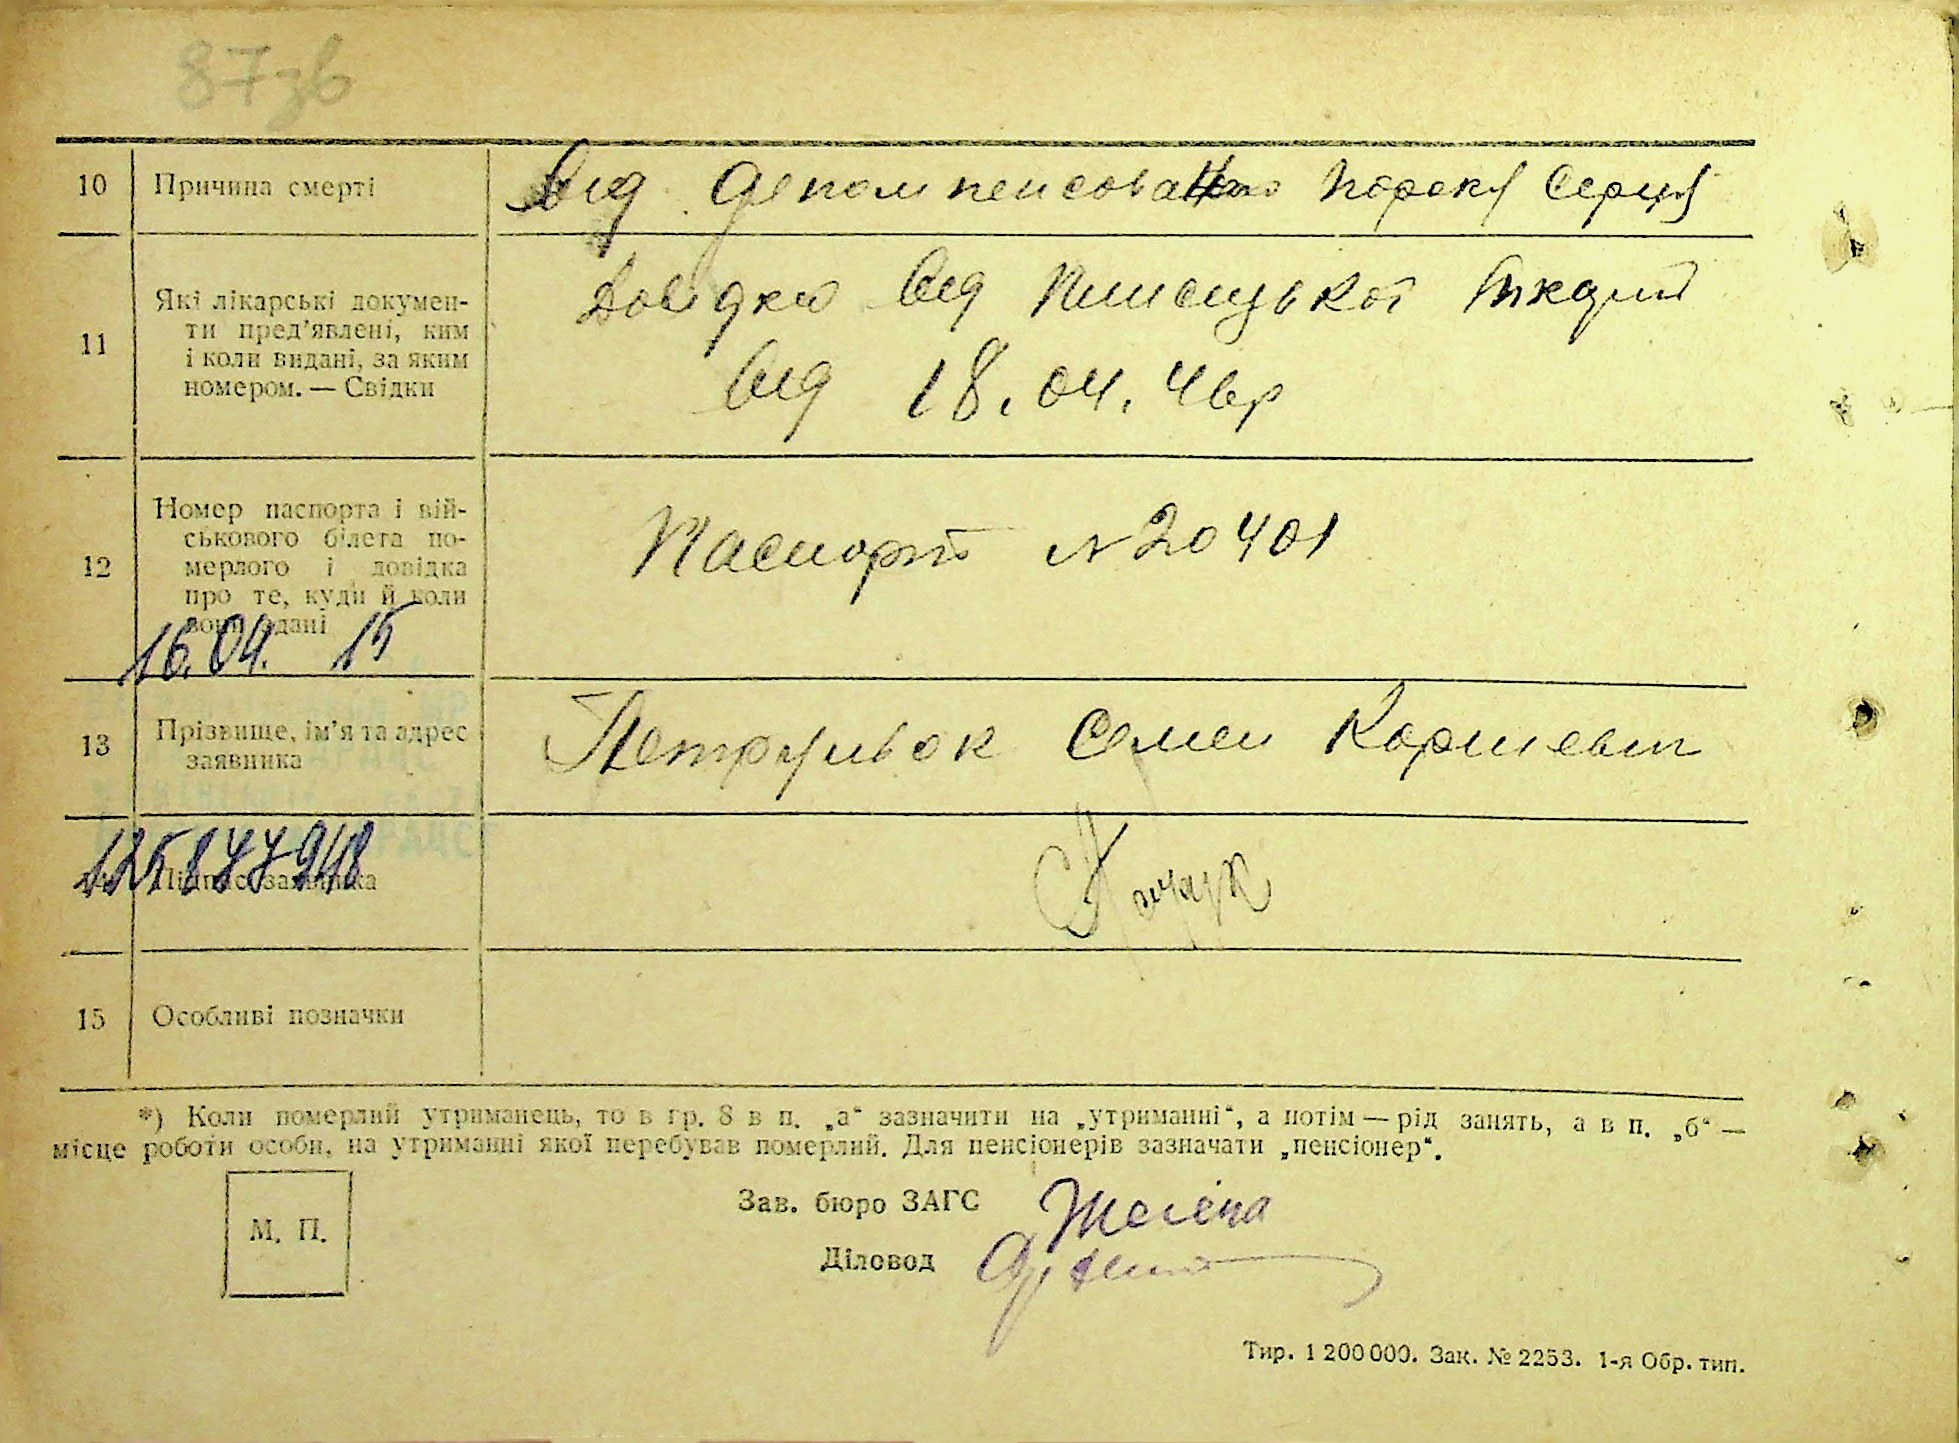 87зв
10 Причина смерті Від декомпенсовано пороку Серця
11 Які лікарські докумен-
ти пред’явлені, ким
і коли видані, за яким
номером. — Свідки
Довідка Від
Від 18.04.46р
12 Номер паспорта і вій-
ськового білета по-
мерлого і довідка
про те, куди й коли
вони здані
Паспорт № 20401
16.04. 15
13 Прізвище, ім’я та адрес
заявника
Семен
Підпис заявника
15 Особливі позначки
*) Коли померлий утриманець, то в гр. 8 в п. „а“ зазначити на „утриманні“, а потім — рід занять, а в п. „б“ —
місце роботи особи, на утриманні якої перебував померлий. Для пенсіонерів зазначати „пенсіонер“.
М. П.
Зав. бюро ЗАГС
Діловод
Тир. 1 200 000. Зак. № 2253. 1-я Обр. тип.